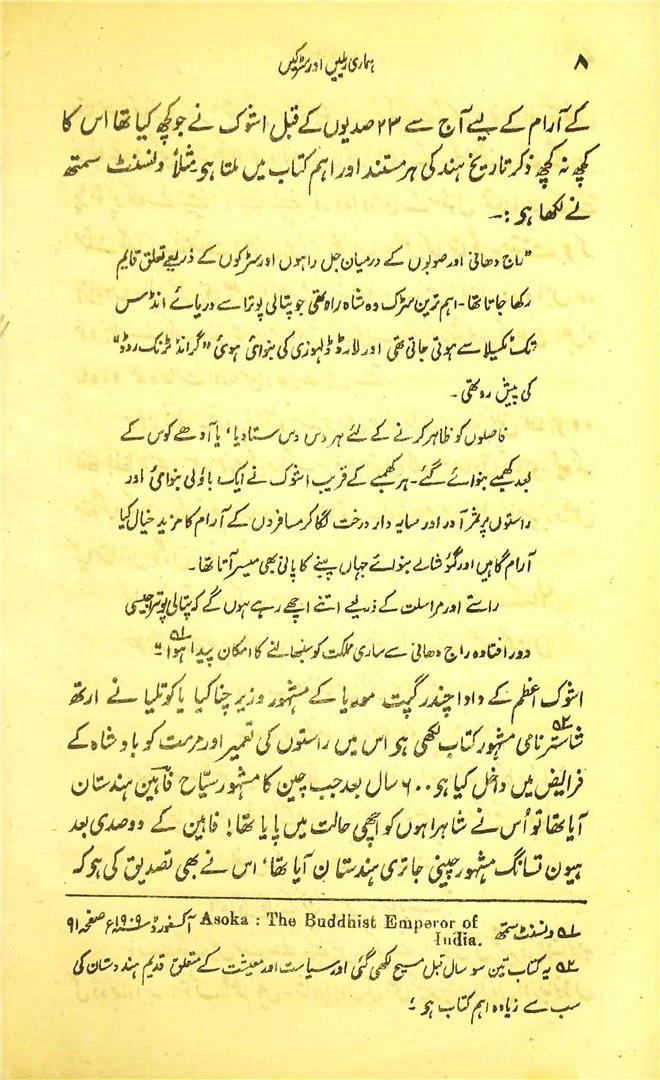 ہماری ریلیں اور سڑکیں
۸
کے آرام کے لیے آج سے ۲۳ صدیوں کے قبل اشوک نے جو کچھ کیا تھا اس کا
کچھ نہ کچھ ذکر تاریخ ہند کی ہر مستند اور اہم کتاب میں ملتا ہو مثلاً ونسنٹ سمتھ
نے لکھا ہو :۔
"راج دھانی اور صوبوں کے درمیان جل راہوں اور سڑکوں کے ذریعے تعلق قایم
رکھا جاتا تھا۔ اہم ترین سڑک وہ شاہ راہ تھی جو پتالی پوترا سے دریائے انڈس
تک ٹکسیلا سے ہوتی جاتی تھی اور لارڈ ڈلہوزی کی بنوائی ہوئی "گرانڈ ٹرنک روڈ"
کی پیش رو تھی۔
فاصلوں کو ظاہر کرنے کے لئے ہر دس دس ستادیا، یا آدھے کوس کے
بعد کھمبے بنوائے گئے۔ ہر کھمبے کے قریب اشوک نے ایک باؤلی بنوائی اور
راستوں پر ثمر آور اور سایہ دار درخت لگا کر مسافروں کے آرام کا مزید خیال کیا
آرام گاہیں اور گئو شالے بنوائے جہاں پینے کا پانی بھی میسر آتا تھا۔
راستے اور مراسلت کے ذریعے اتنے اچھے رہے ہوں گے کہ پتالی پوتر جیسی
دور افتادہ راج دھانی سے ساری مملکت کو سنبھالنے کا امکان پیدا ہوا"۔ ۱؎
اشوک اعظم کے دادا چندر گپت موریا کے مشہور وزیر چناکیا یا کوتلیا نے ارتھ
شاستر ۲؎ نامی مشہور کتاب لکھی ہو اس میں راستوں کی تعمیر اور مرمت کو بادشاہ کے
فرایض میں داخل کیا ہو ۶۰۰ سال بعد جب چین کا مشہور سیّاح فاہین ہندستان
آیا تھا تو اُس نے شاہراہوں کو اچھی حالت میں پایا تھا! فاہین کے دو صدی بعد
ہیون تسانگ مشہور چینی جاتری ہندستان آیا تھا، اس نے بھی تصدیق کی ہو کہ
۱؎ ونسنٹ سمتھ Asoka : The Buddhist Emperor of آکسفورڈ ۱۹۰۹ء صفحہ ۹۱
India.
۲؎ یہ کتاب تین سو سال قبل مسیح لکھی گئی اور سیاست اور معیشت کے متعلق قدیم ہندستان کی
سب سے زیادہ اہم کتاب ہو ؛